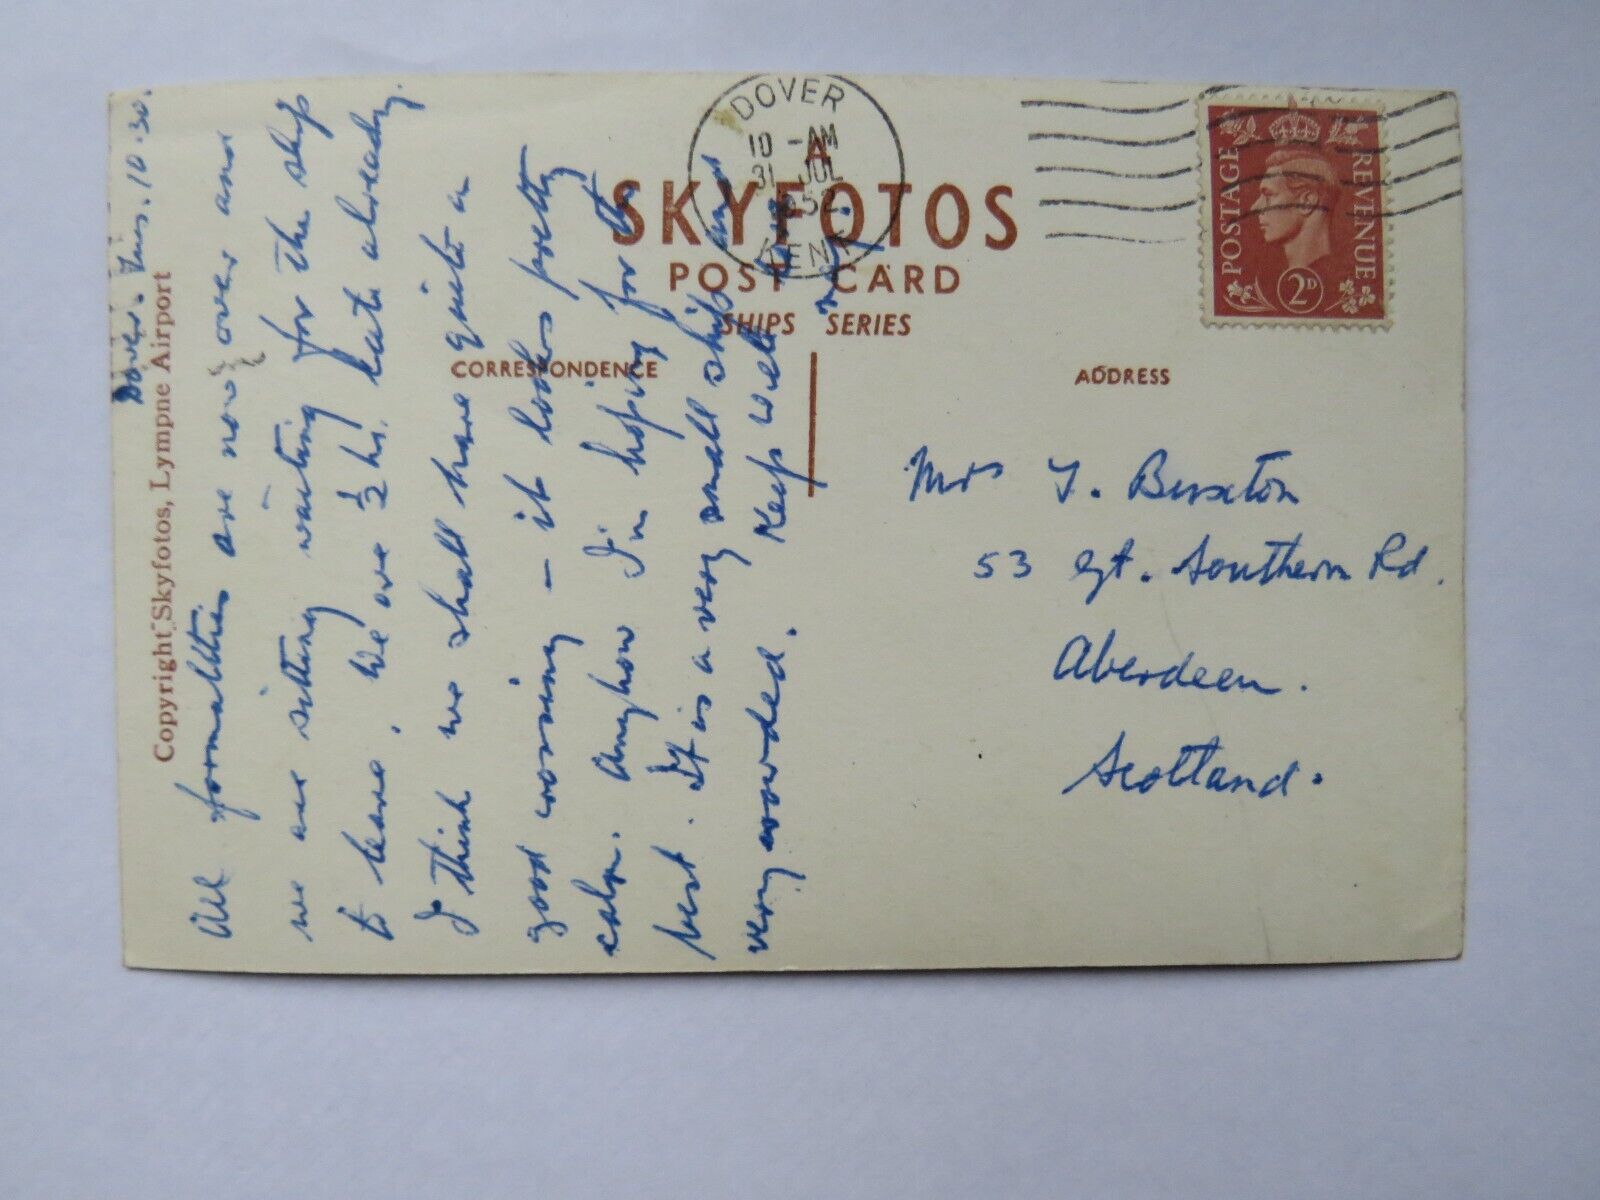 A
SKYFOTOS
POST CARD
SHIPS SERIES
CORRESPONDENCE
ADDRESS
Copyright Skyfotos, Lympne Airport
DOVER
10 - AM
31 JLY
1952
KENT
POSTAGE
REVENUE
2D
Dover. 10.30.
All formalities are now over and
we are sitting waiting for the ship
to leave. We are ½ hr. late already.
I think we shall have quite a
good crossing – it looks pretty
calm. Anyhow I'm hoping for the
best. It is a very small ship and
very crowded. Keep well
Mrs J. Buxton
53 Gt. Southern Rd.
Aberdeen.
Scotland.